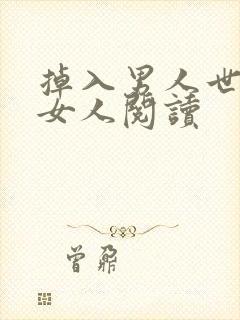 掉入男人世
女人閱讀
曾鼐